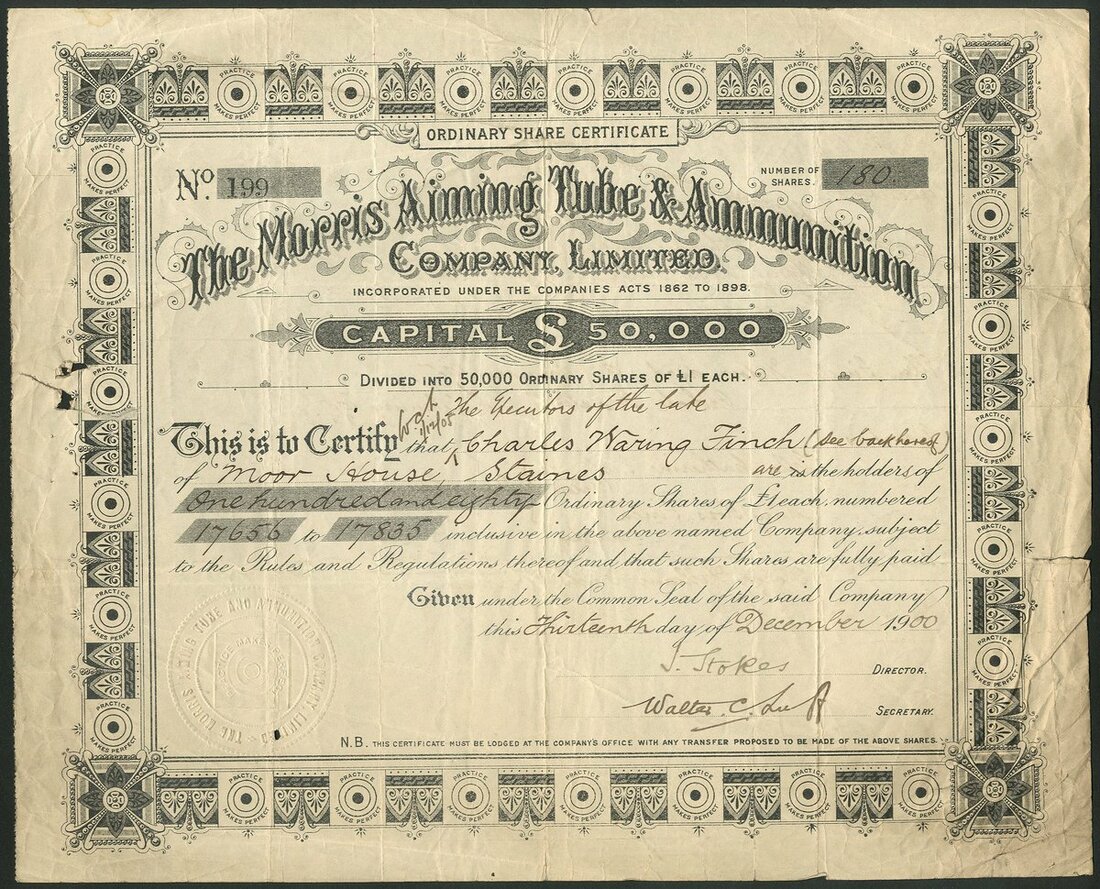 PRACTICE MAKES PERFECT
ORDINARY SHARE CERTIFICATE
No 199
NUMBER OF SHARES. 180
The Morris Aiming Tube & Ammunition
COMPANY, LIMITED.
INCORPORATED UNDER THE COMPANIES ACTS 1862 TO 1898.
CAPITAL £ 50,000
DIVIDED INTO 50,000 ORDINARY SHARES OF £1 EACH.
The Executors of the late
This is to Certify that Charles Waring Finch (see back hereof)
of Moor House, Staines are is the holders of
One hundred and eighty Ordinary Shares of £1 each, numbered
17656 to 17835 inclusive in the above named Company, subject
to the Rules and Regulations thereof and that such Shares are fully paid
Given under the Common Seal of the said Company
this Thirteenth day of December 1900
J. Stokes DIRECTOR.
Walter C. Luff SECRETARY.
THE MORRIS AIMING TUBE AND AMMUNITION COMPANY LIMITED
PRACTICE MAKES PERFECT
N.B. THIS CERTIFICATE MUST BE LODGED AT THE COMPANY'S OFFICE WITH ANY TRANSFER PROPOSED TO BE MADE OF THE ABOVE SHARES.